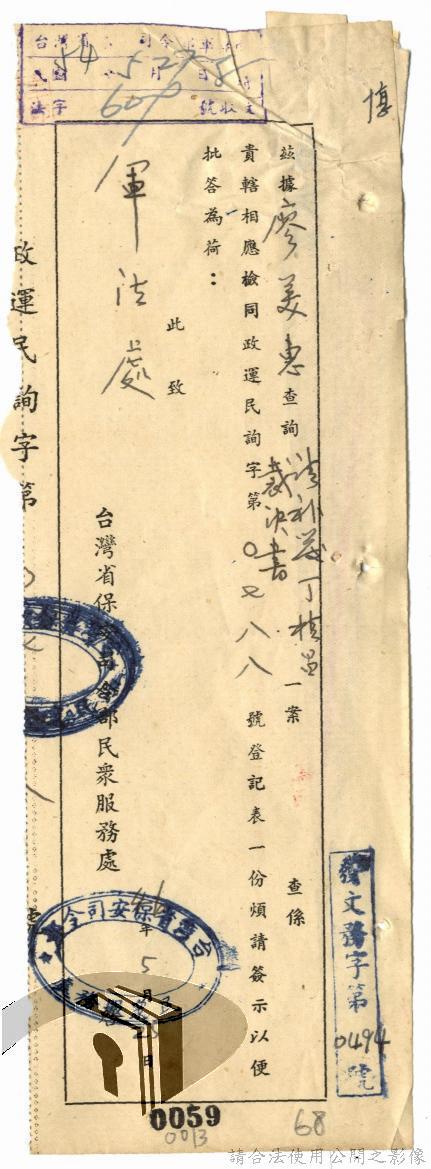 茲據廖美惠查詢請補發丁楨昌裁決書一案 查係
貴轄相應檢同政運民詢字第〇七八八號登記表一份煩請簽示以便
批答為荷：
此致
軍法處
台灣省保安司令部民眾服務處
44年5月 日
政運民詢字第
台灣省保安司令
發文務字第0494號
法字 609 號收文
54 5 27
0059
0013
68
請合法使用公開之影像